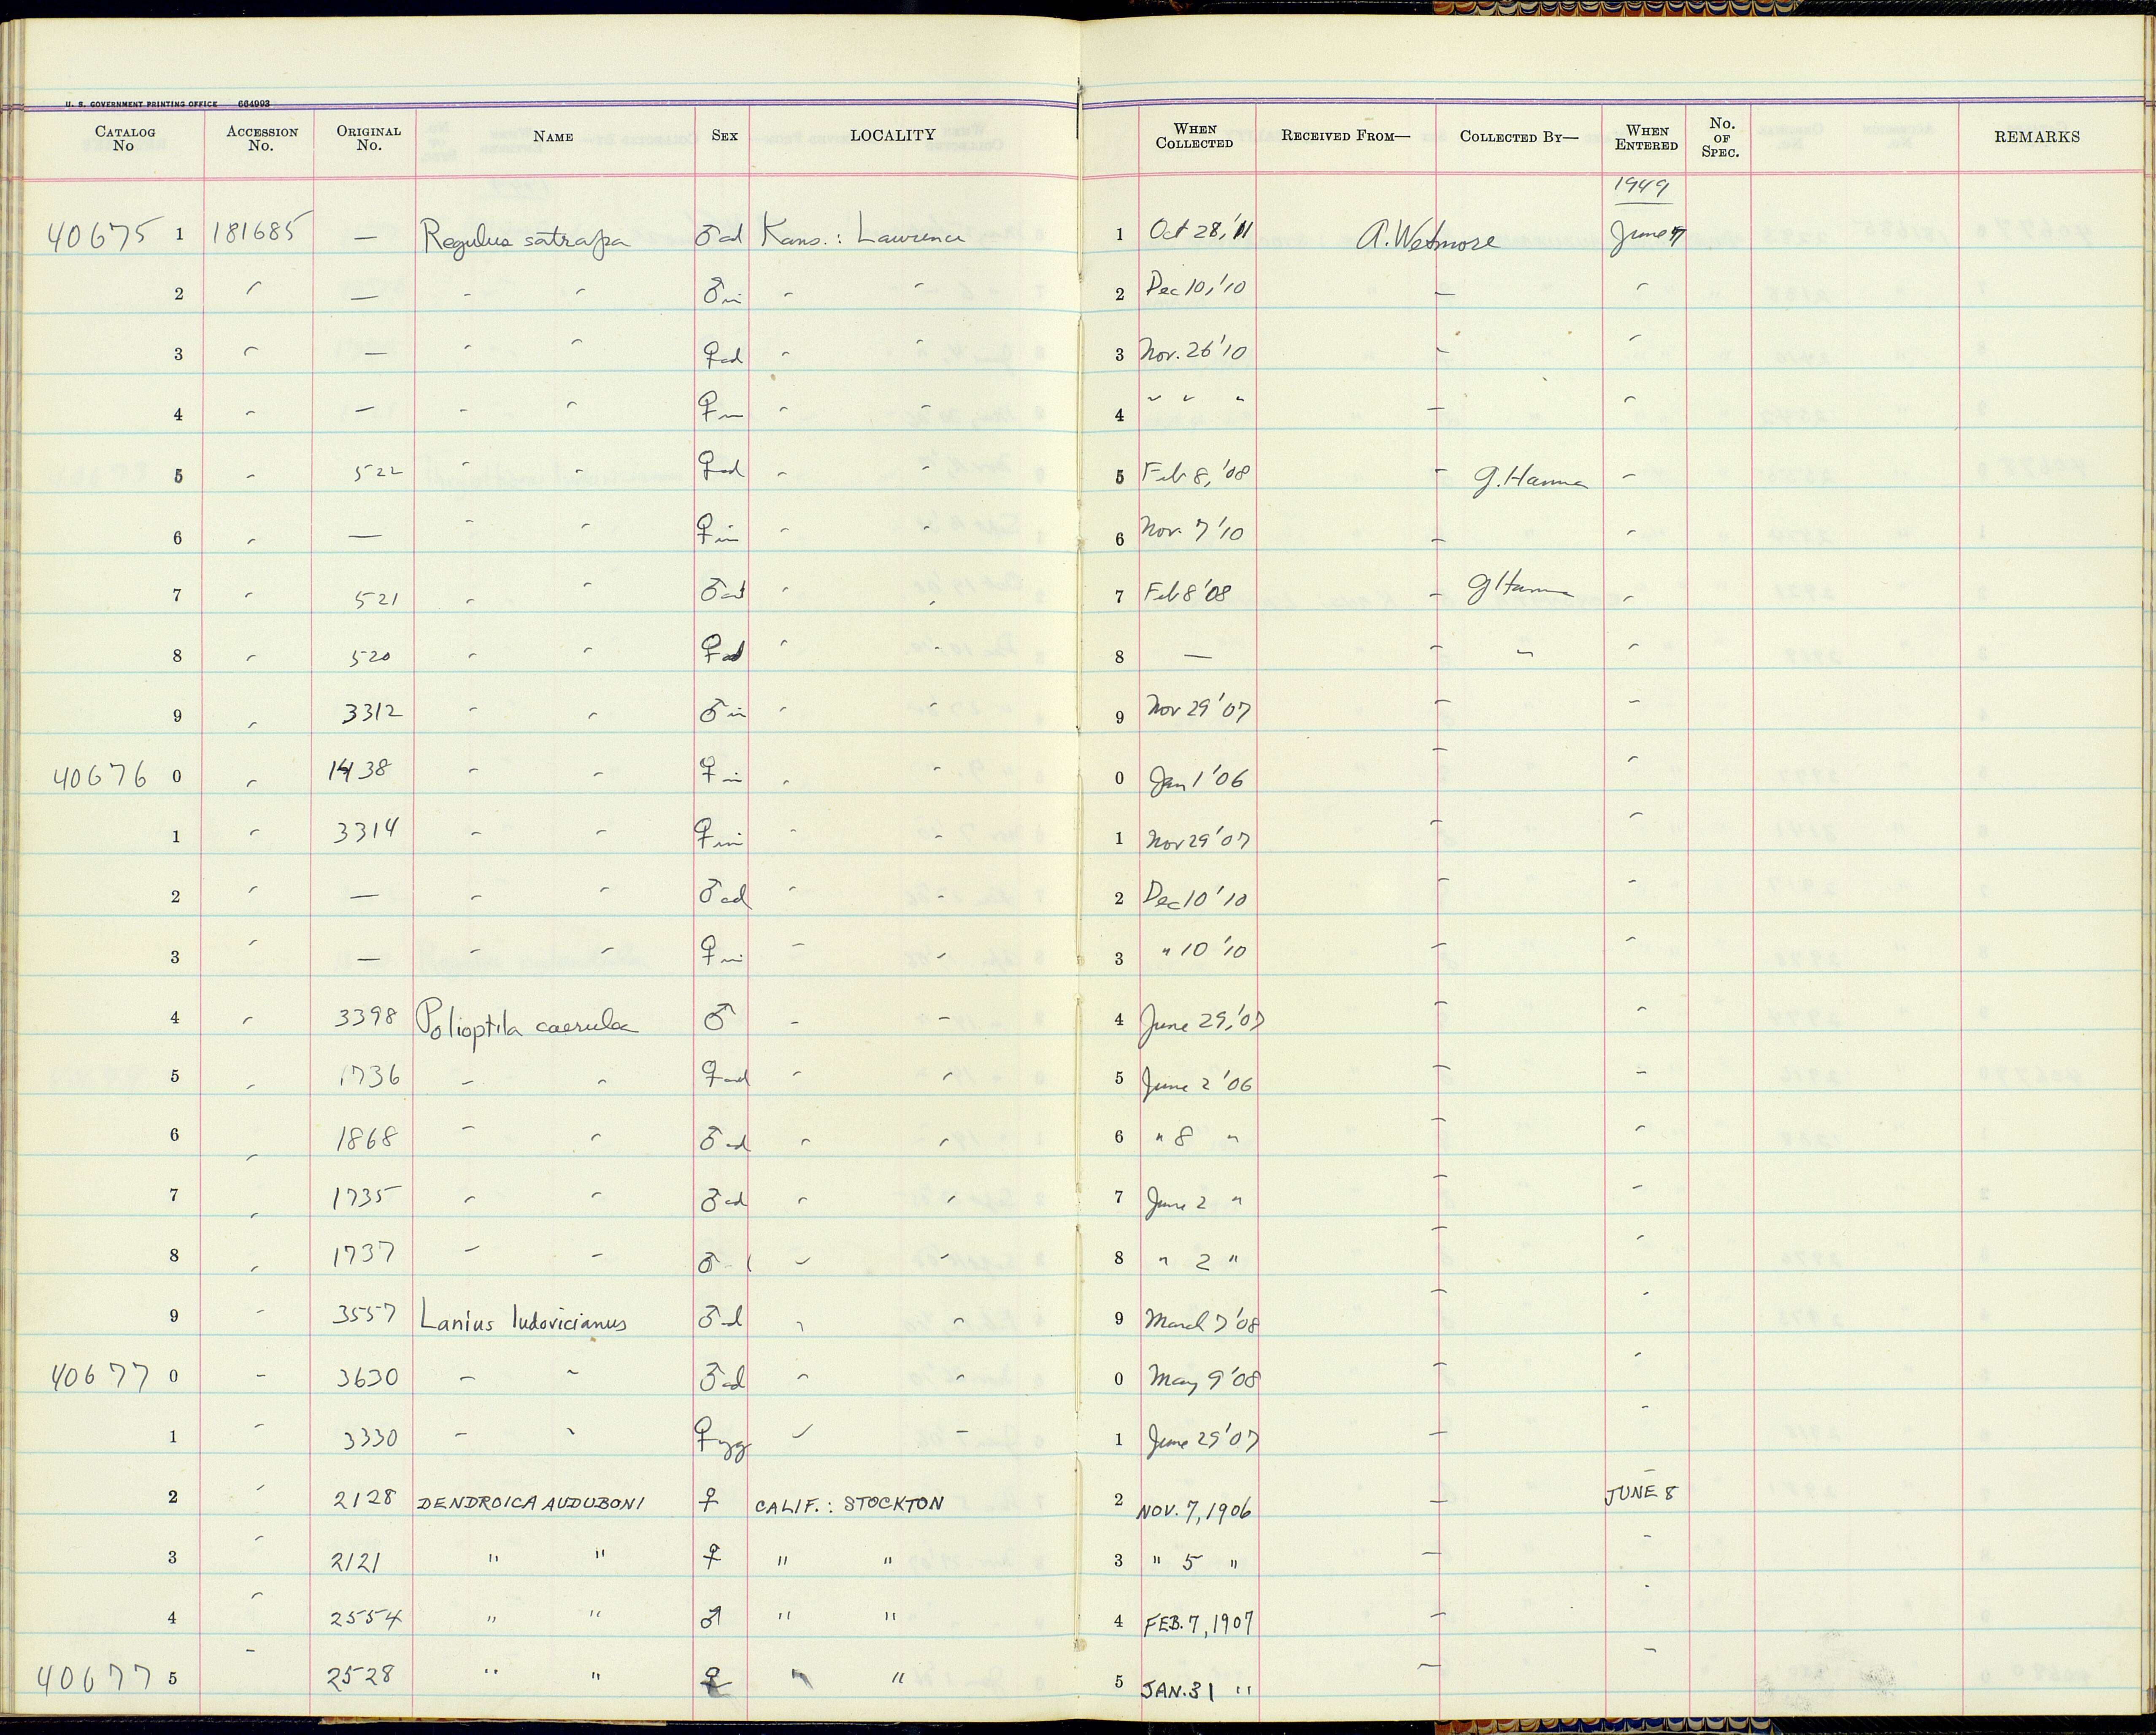 U. S. GOVERNMENT PRINTING OFFICE 664993
CATALOG No ACCESSION No. ORIGINAL No. NAME SEX LOCALITY WHEN COLLECTED RECEIVED FROM— COLLECTED BY— WHEN ENTERED No. OF SPEC. REMARKS
1949
40675 1 181685 — Regulus satrapa ♂ad Kans.: Lawrence 1 Oct 28, '11 A. Wetmore June 7
2 " — " " ♂im " " 2 Dec 10, '10 " "
3 " — " " ♀ad " " 3 Nov. 26 '10 " "
4 " — " " ♀im " " 4 " " " " "
5 " 522 " " ♀ad " " 5 Feb 8, '08 " G. Hanna "
6 " — " " ♀im " " 6 Nov. 7 '10 " "
7 " 521 " " ♂ad " " 7 Feb 8 '08 " G Hanna "
8 " 520 " " ♀ad " " 8 — " " "
9 " 3312 " " ♂im " " 9 Nov 29 '07 " "
40676 0 " 1438 " " ♀im " " 0 Jan 1 '06 " "
1 " 3314 " " ♀im " " 1 Nov 29 '07 " "
2 " — " " ♂ad " " 2 Dec 10 '10 " "
3 " — " " ♀im " " 3 " 10 '10 " "
4 " 3398 Polioptila caerulea ♂ " " 4 June 29, '07 " "
5 " 1736 " " ♀ad " " 5 June 2 '06 " "
6 " 1868 " " ♂ad " " 6 " 8 " " "
7 " 1735 " " ♂ad " " 7 June 2 " " "
8 " 1737 " " ♂ad " " 8 " 2 " " "
9 " 3557 Lanius ludovicianus ♂ad " " 9 March 7 '08 " "
40677 0 " 3630 " " ♂ad " " 0 May 9 '08 " "
1 " 3330 " " ♀yg " " 1 June 29 '07 " "
2 " 2128 DENDROICA AUDUBONI ♀ CALIF.: STOCKTON 2 NOV. 7, 1906 " JUNE 8
3 " 2121 " " ♀ " " 3 " 5 " " "
4 " 2554 " " ♂ " " 4 FEB. 7, 1907 " "
40677 5 " 2528 " " ♀ " " 5 JAN. 31 " " "